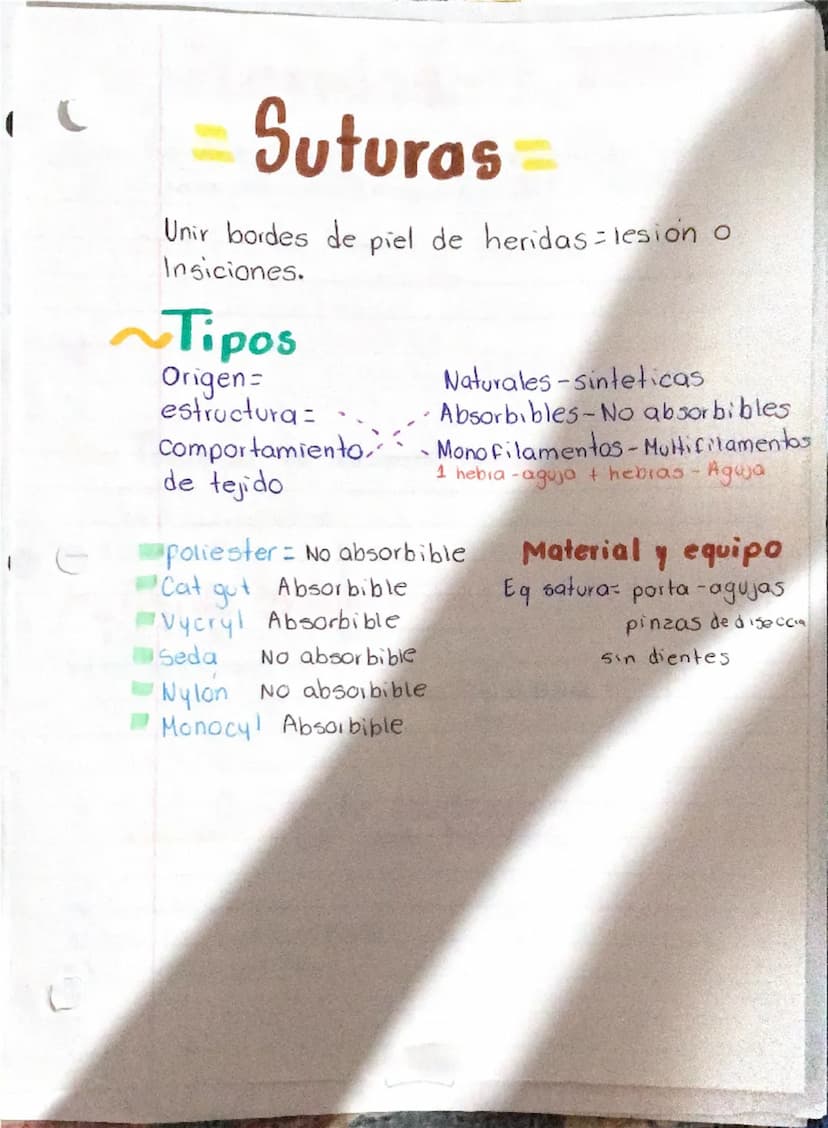 = Suturas =
Unir bordes de piel de heridas = lesión o
Insiciones.
~Tipos
Origen=
estructura=
comportamiento
de tejido
Naturales - sinteticas
Absorbibles - No absorbibles
Monofilamentos - Multifilamentos
1 hebra - aguja + hebras - Aguja
poliester = No absorbible
Cat gut Absorbible
Vycryl Absorbible
Seda No absorbible
Nylon No absorbible
Monocyl Absorbible
Material y equipo
Eq satura= porta - agujas
pinzas de disección
sin dientes